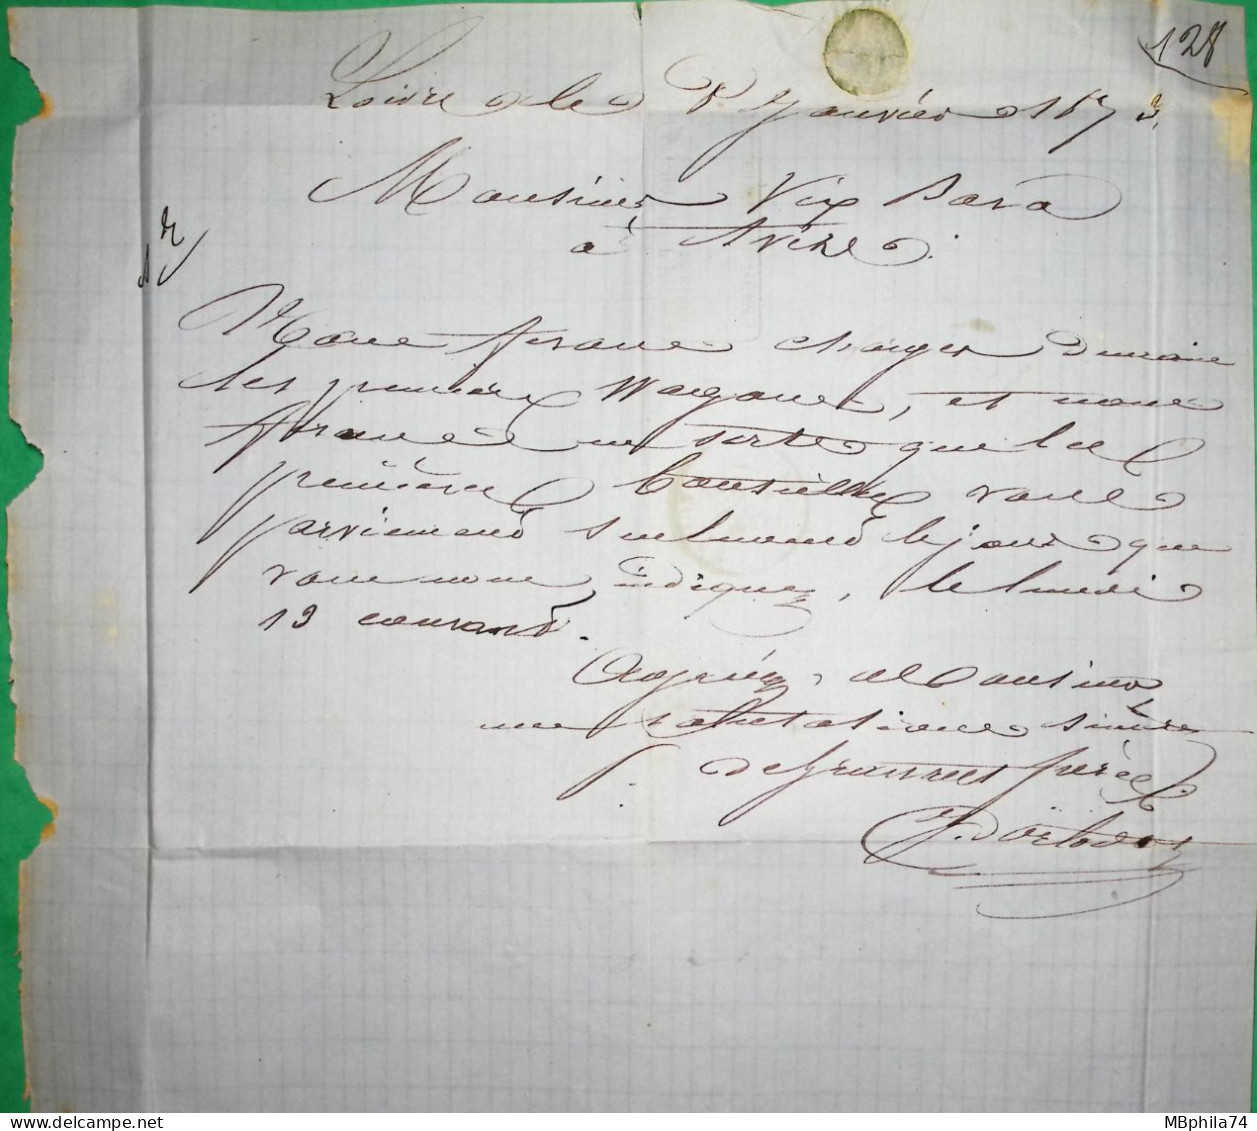 128
Loivre le 8 Janvier 1873
Monsieur Vix Bara
à Avize.
Nous ferons charger demain
les premiers Wagons, et nous
ferons en sorte que les
premières bouteilles vous
parviennent seulement le jour que
vous nous indiquez, le lundi
13 courant.
Agréez, Monsieur,
nos salutations sincères
p.
frères
MBphila74